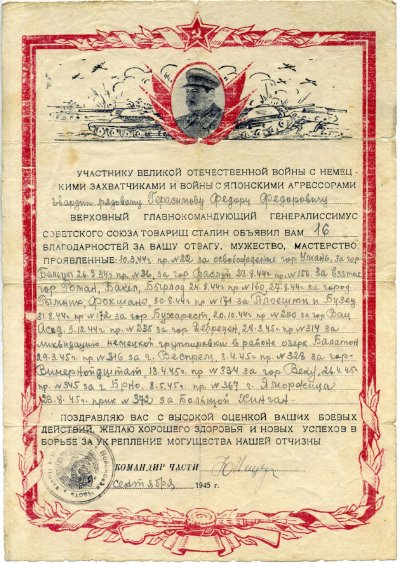 УЧАСТНИКУ ВЕЛИКОЙ ОТЕЧЕСТВЕННОЙ ВОЙНЫ С НЕМЕЦ-
КИМИ ЗАХВАТЧИКАМИ И ВОЙНЫ С ЯПОНСКИМИ АГРЕССОРАМИ
гвардии рядовому Герасимову Федору Федоровичу
ВЕРХОВНЫЙ ГЛАВНОКОМАНДУЮЩИЙ ГЕНЕРАЛИССИМУС
СОВЕТСКОГО СОЮЗА ТОВАРИЩ СТАЛИН ОБЪЯВИЛ ВАМ 16
БЛАГОДАРНОСТЕЙ ЗА ВАШУ ОТВАГУ, МУЖЕСТВО, МАСТЕРСТВО
ПРОЯВЛЕННЫЕ: 10.3.44г. пр.№82 за освобождение гор Умань, за гор
Бельцы 26.3.44г. пр.№96, за гор Васлуй 23.8.44г. пр.№156 за взятие
гор Роман, Бакэу, Бырлад 24.8.44г пр.№160, 27.8.44г за город
Рымник, Фокшаны, 30.8.44г пр.№171 за Плоешти и Бузеу
31.8.44г пр.№172 за гор Бухарест, 20.10.44г пр.№200 за гор
5.12.44г. пр.№ за гор Дебрецен, пр.№314 за
ликвидацию немецкой группировки в районе озера Балатон
29.3.45г. пр.№316 за г. Веспрем, 3.4.45г. пр.№328 за гор-
Винернойштадт 13.4.45г. пр.№334 за гор Вену, 26.4.45г
пр.№345 за г Брно. 8.5.45г. пр.№367 г.
23.8.45г. прик №372 за Большой Хинган.
ПОЗДРАВЛЯЮ ВАС С ВЫСОКОЙ ОЦЕНКОЙ ВАШИХ БОЕВЫХ
ДЕЙСТВИЙ, ЖЕЛАЮ ХОРОШЕГО ЗДОРОВЬЯ И НОВЫХ УСПЕХОВ В
БОРЬБЕ ЗА УКРЕПЛЕНИЕ МОГУЩЕСТВА НАШЕЙ ОТЧИЗНЫ
КОМАНДИР ЧАСТИ
сентября 1945 г.